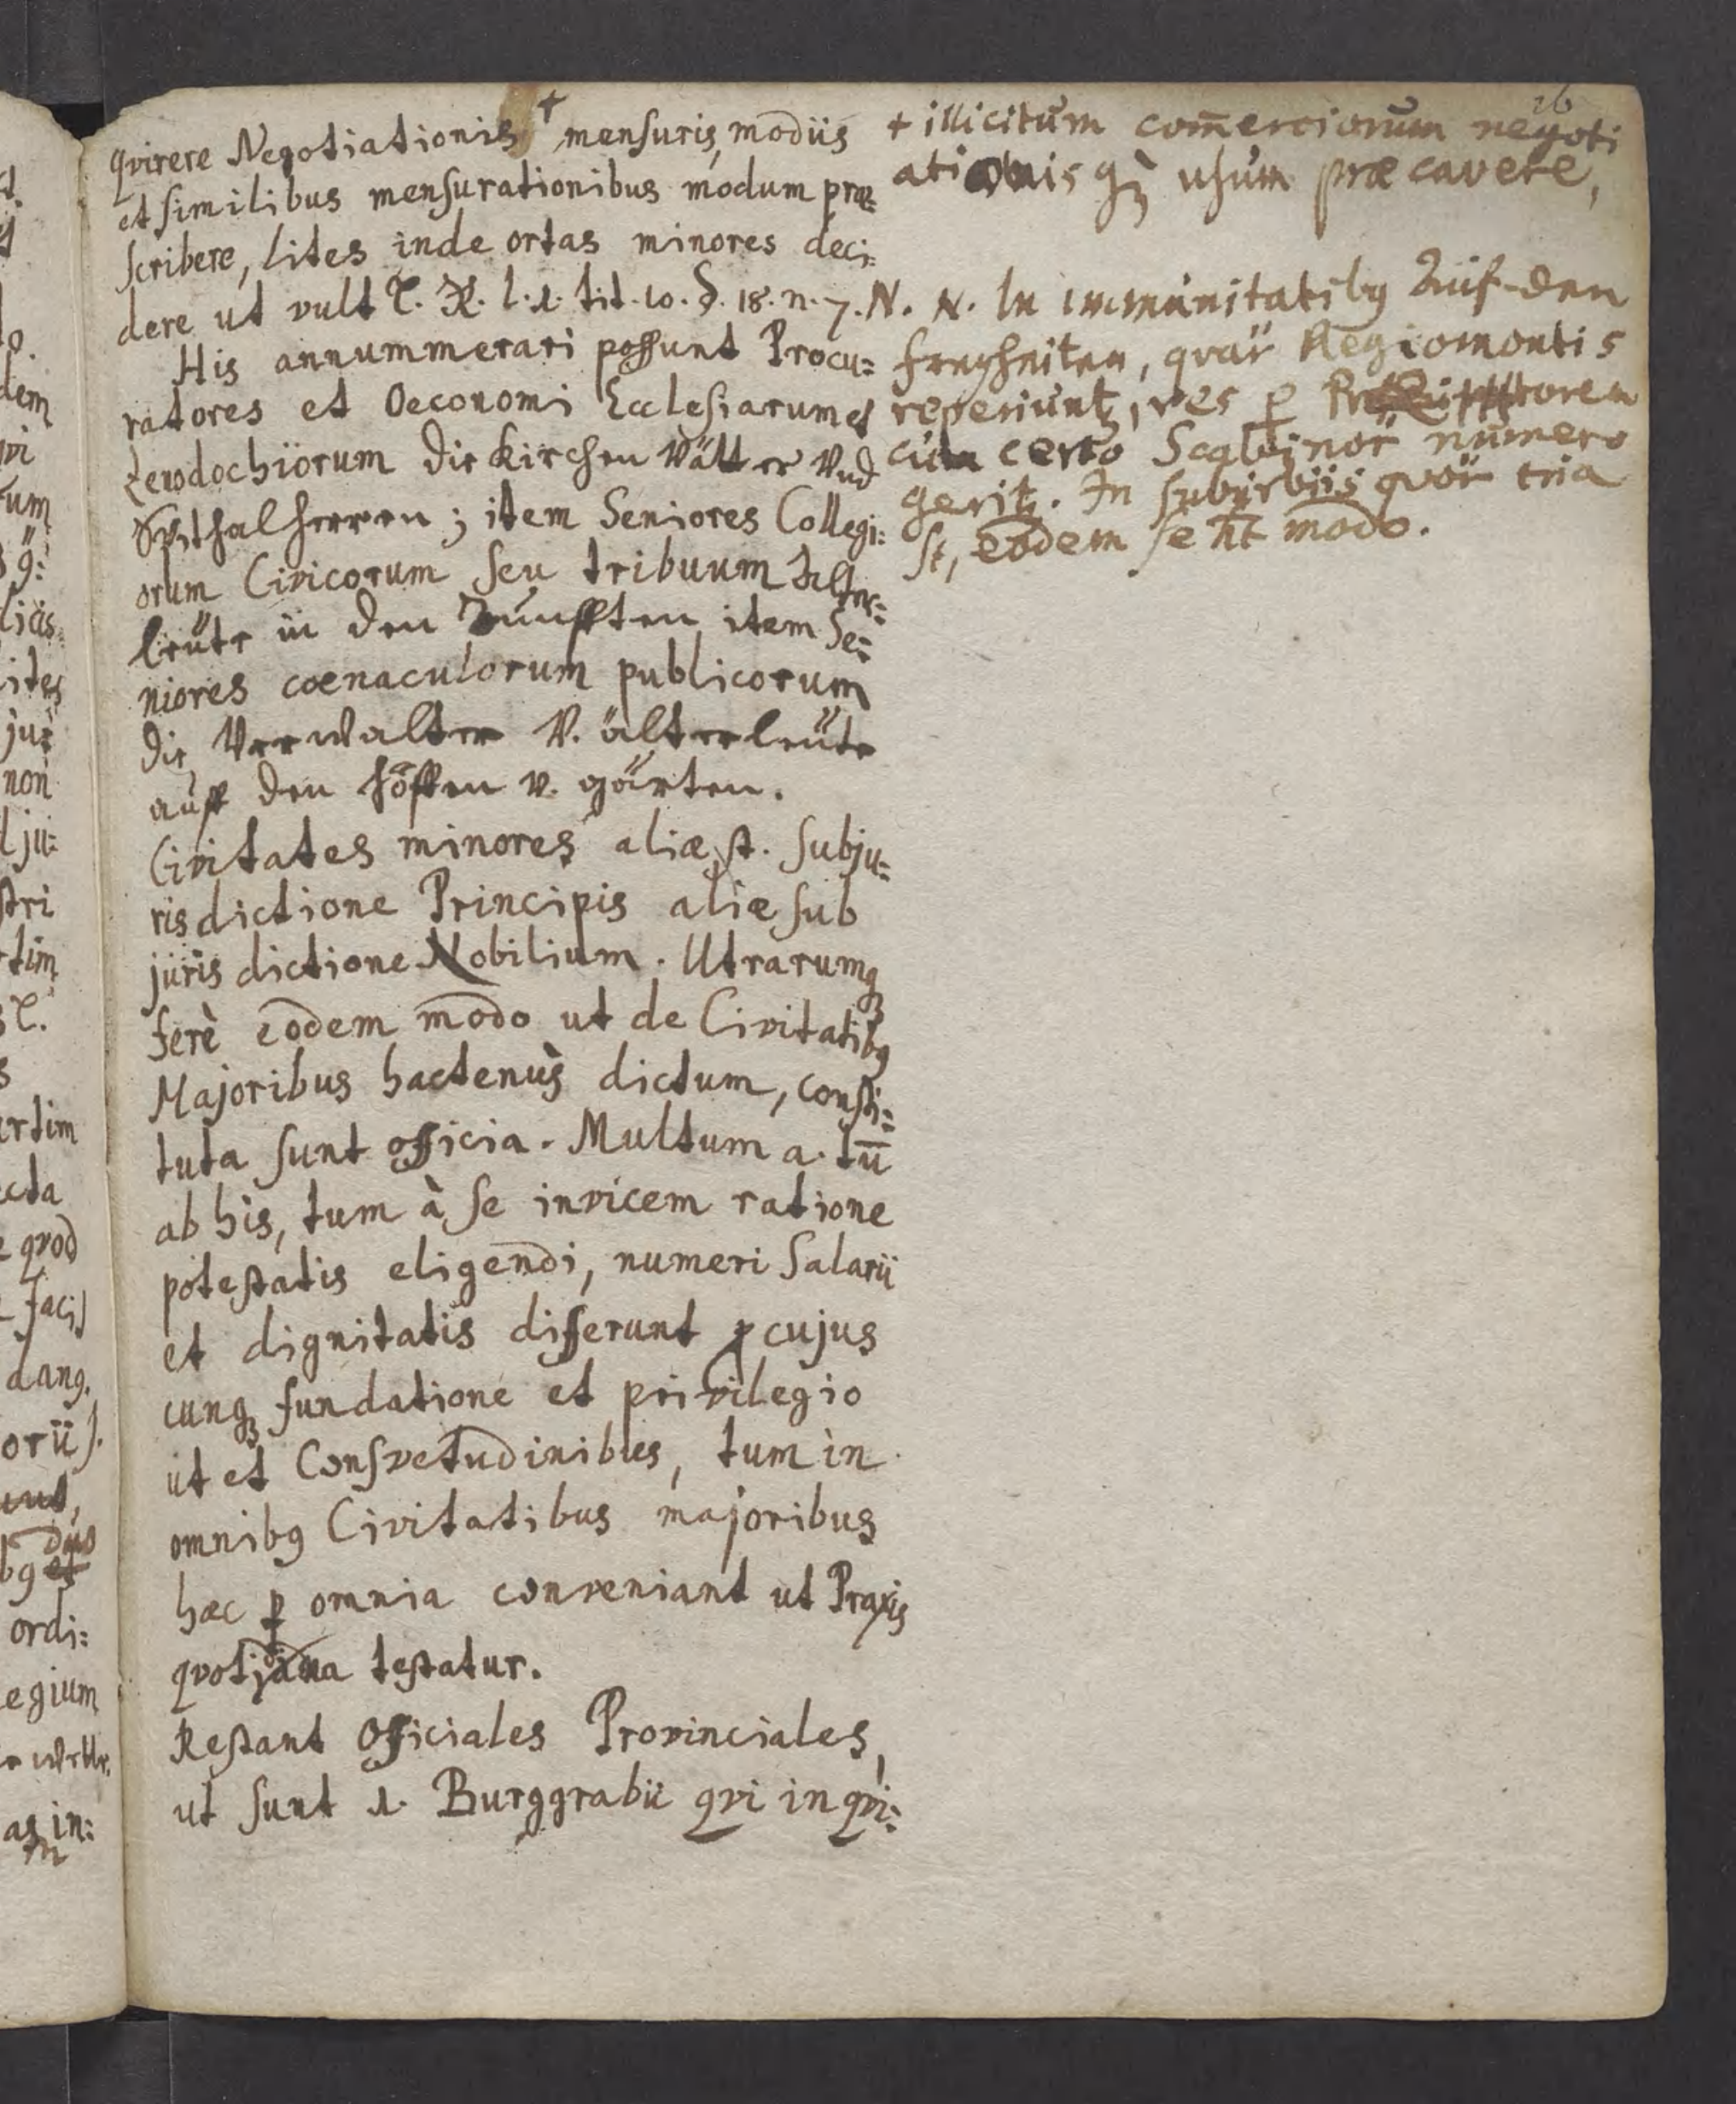 qvirere Negotiationis + mensuris, modiis
et similibus mensurationibus modum præ=
scribere, lites inde ortas minores deci=
dere ut vult C. K. l. 1. tit. 10. §. 18. n. 7. N.
His annummerari possunt Procu=
ratores et Oeconomi Ecclesiarum et
Xenodochiorum die Kirchen Vätter Vnd
Spithalherren; item Seniores Collegi=
orum Civicorum seu tribuum Älter=
leüte in den Zunfften item Se=
niores coenaculorum publicorum
die Verwalter V. älterleüte
auff den höffen v. gärten.
Civitates minores aliæ st. subju=
risdictione Principis aliæ sub
jurisdictione Nobilium. Utrarumq3
ferè eodem modo ut de Civitatib9
Majoribus hactenùs dictum, consti=
tuta sunt officia. Multum a. tū
ab his, tum à se invicem ratione
potestatis eligendi, numeri Salarii
et dignitatis differunt p cujus
cunq3 fundatione et privilegio
ut et Consvetudinibus, tum in
omnib9 Civitatibus majoribus
hæc p omnia conveniant ut Praxis
testatur.
Restant Officiales Provinciales,
ut sunt 1. Burggrabii qvi in qvi=
26
+ illicitum com̄erciorum negoti
ationis q3 usum præcavere,
N. In immunitatib9 Auf den
freyheiten, qvar Regiomontis
reperiunt, res p
cum certo Scabinor numero
gerit. In suburbiis qvor tria
st, eodem se ht modo.